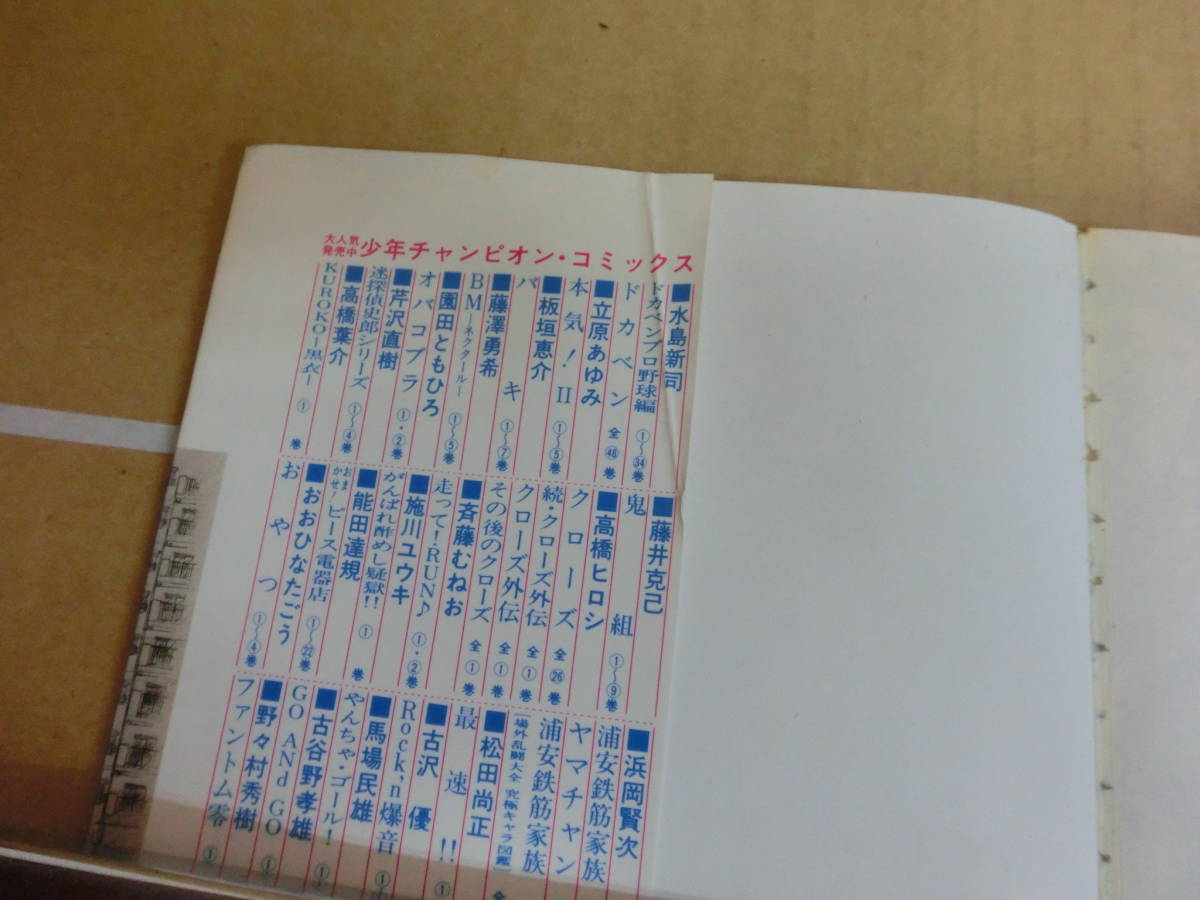 大人気
発売中
少年チャンピオン・コミックス
■水島新司
ドカベンプロ野球編 ①〜㉞巻
ドカベン 全㊽巻
■立原あゆみ
本気!II ①〜⑤巻
■板垣恵介
バキ ①〜⑦巻
■藤澤勇希
BM―ネクタール― ①〜⑤巻
■園田ともひろ
オバコブラ ①・②巻
■芹沢直樹
迷探偵史郎シリーズ ①〜④巻
■高橋葉介
KUROKO―黒衣― ① 巻
■藤井克己
鬼組 ①〜⑨巻
■高橋ヒロシ
クローズ 全㉖巻
続・クローズ外伝 全①巻
クローズ外伝 全①巻
その後のクローズ 全①巻
■斉藤むねお
走って!RUN♪ ①・②巻
■施川ユウキ
がんばれ酢めし疑獄!! ① 巻
■能田達規
おまかせ!ピース電器店 ①〜㉒巻
■おおひなたごう
おやつ ①〜④巻
■浜岡賢次
浦安鉄筋家族
ヤマチャン
浦安鉄筋家族
[場外乱闘大全 究極キャラ図鑑] 全
■松田尚正
最速!! ①
■古沢優
Rock'n爆音 ①
■馬場民雄
やんちゃ・ゴール! ①
■古谷野孝雄
GO ANd GO ①
■野々村秀樹
ファントム零 ①